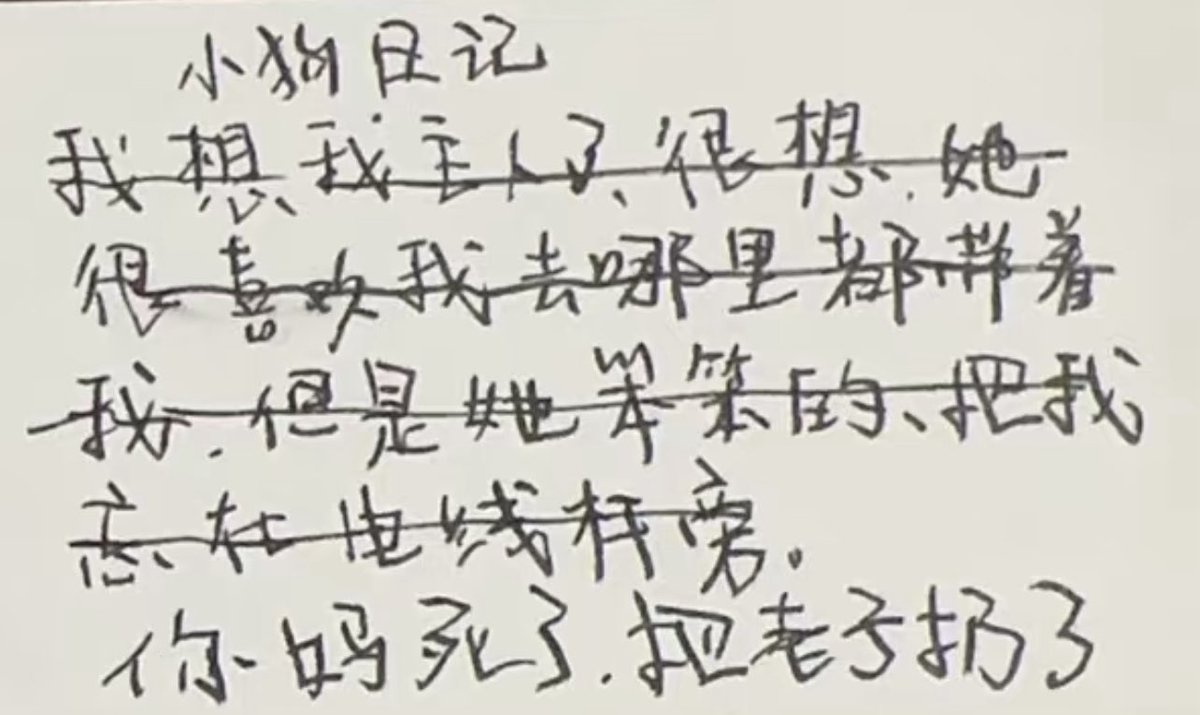 小狗日记
我想我主人了、很想.她
很喜欢我去哪里都带着
我.但是她笨笨的、把我
忘在电线杆旁.
你妈死了.把老子扔了